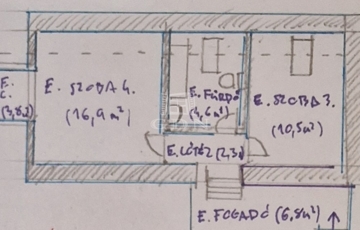 E. SZOBA 4.
(16,9 m²)
E. FÜRDŐ
(4,6 m²)
E. SZOBA 3.
(10,5 m²)
E.
C.
(3,82
E. KÖZL. (2,3
E. FOGADÓ (6,8 m²)